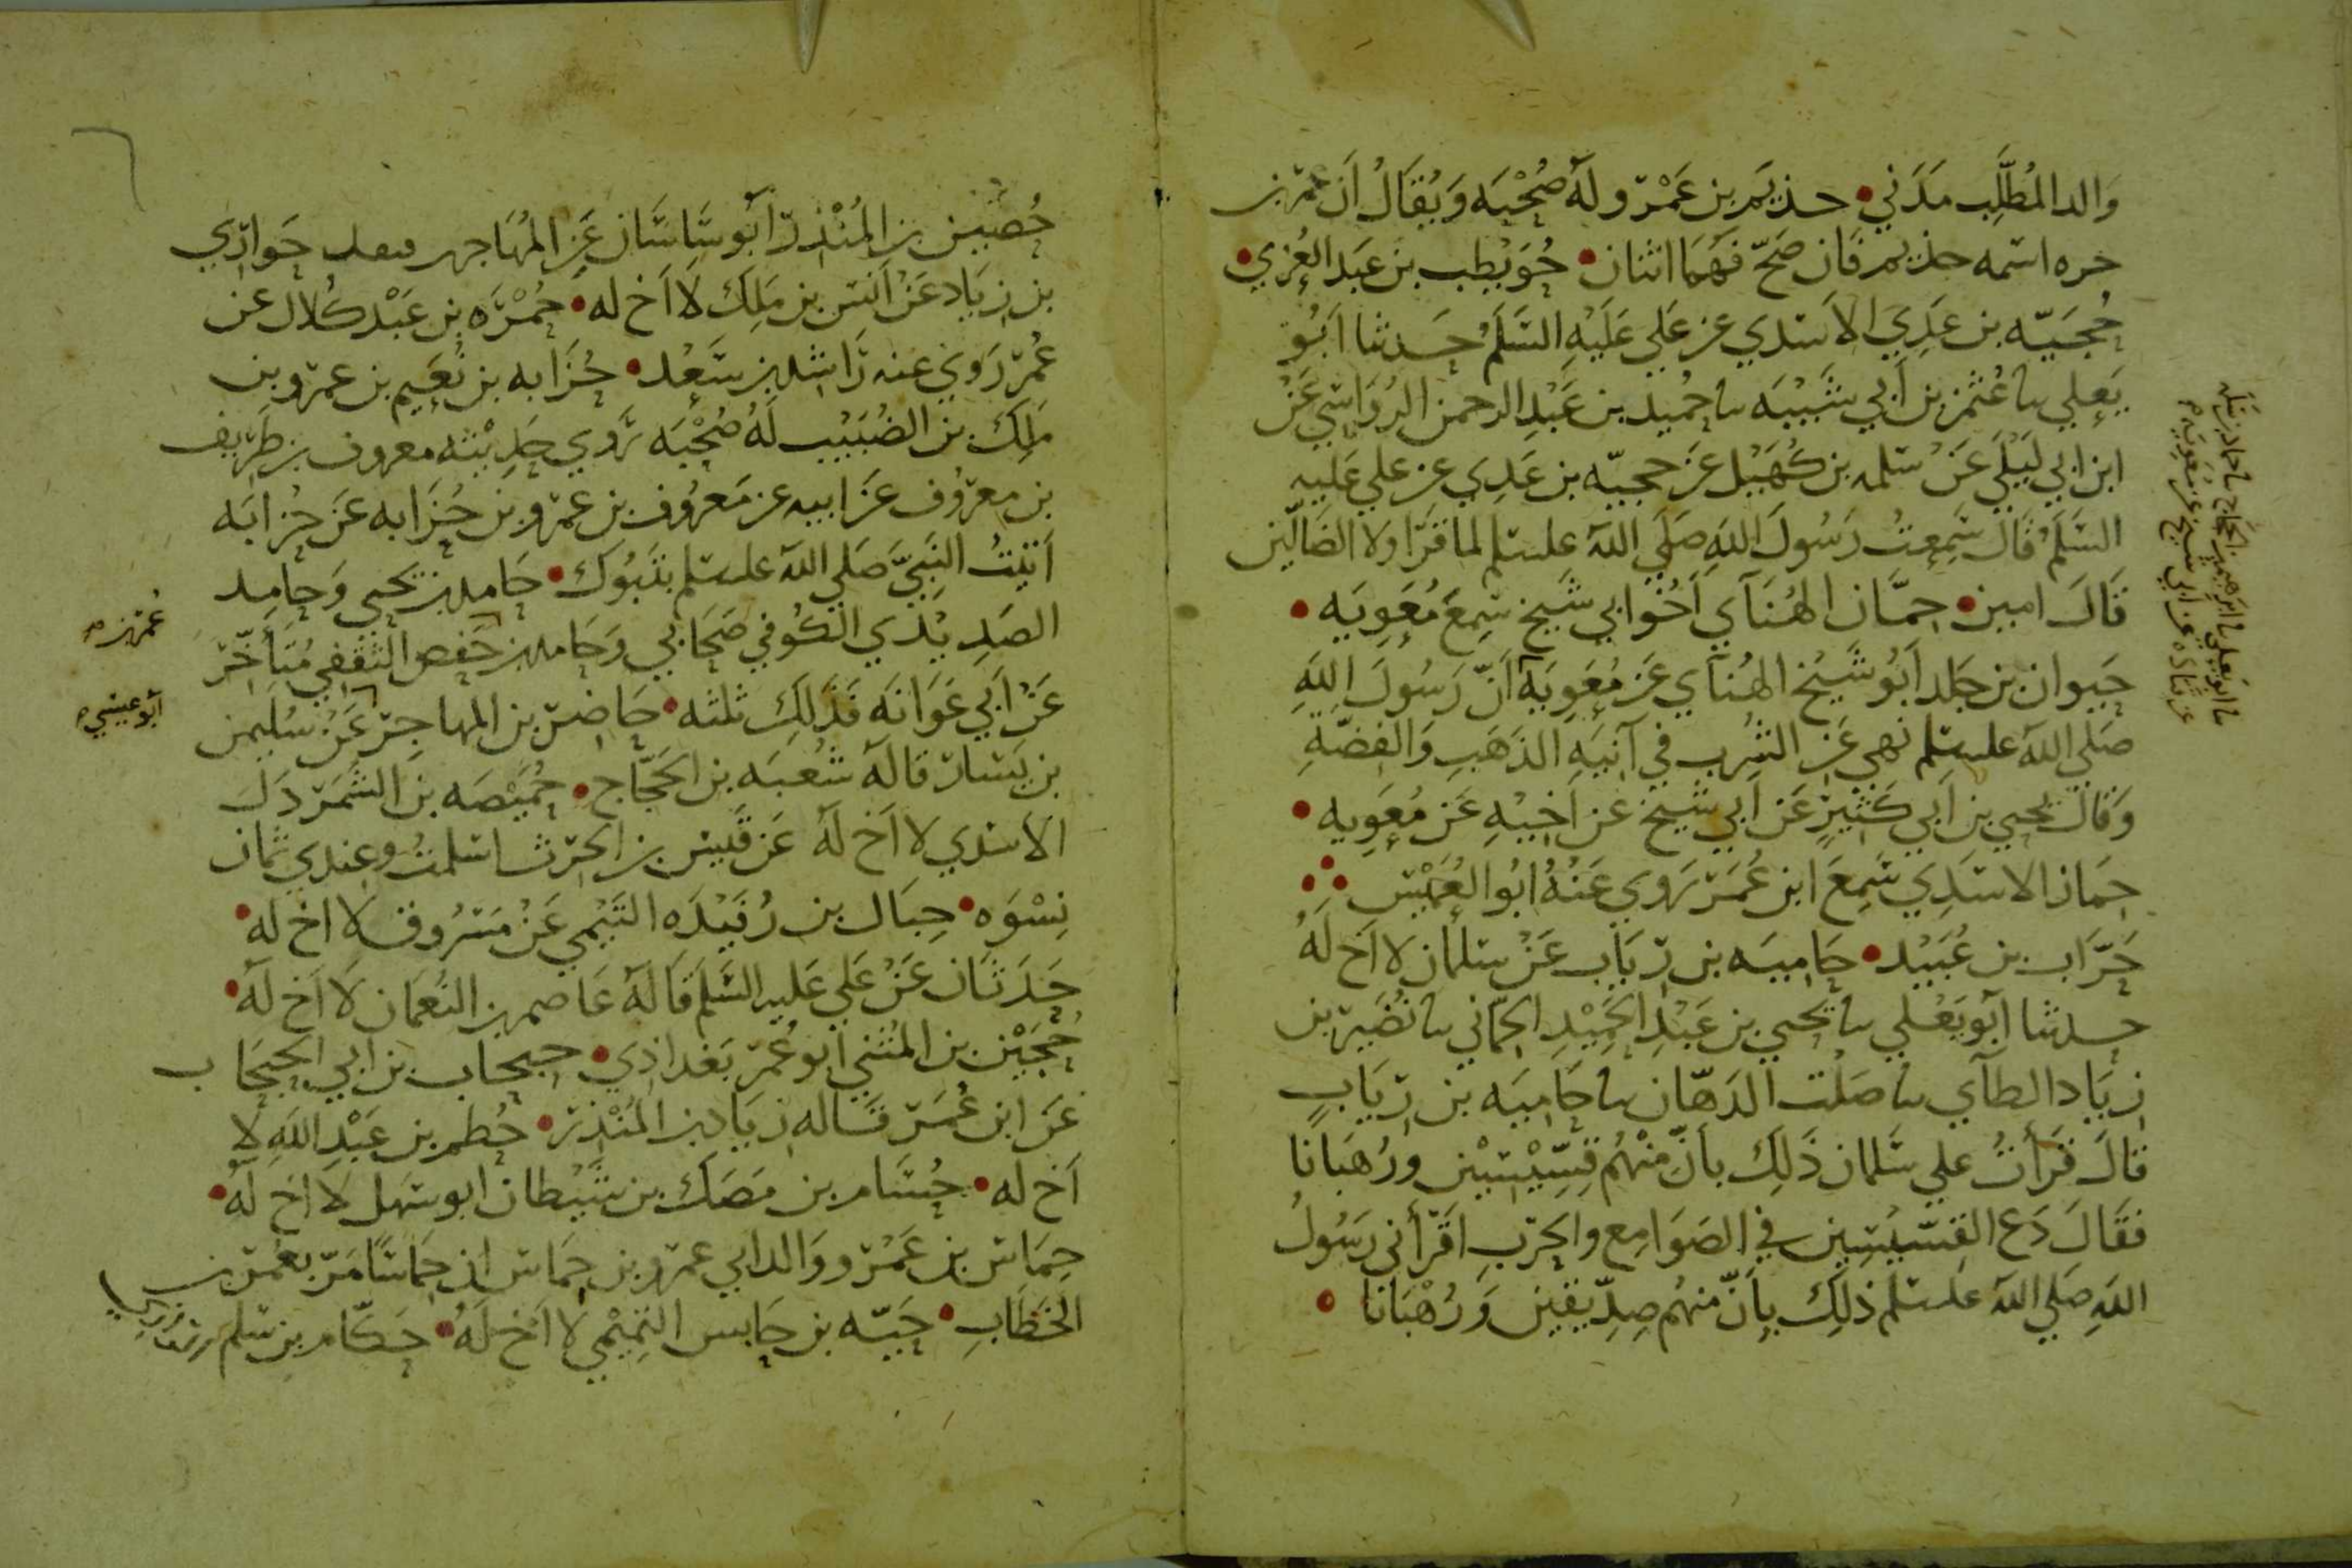 والد المُطَّلِب مَدَني • حذيم بن عَمْرو له صُحْبَه وَيُقَالُ اَن عمر بن
خره اسمه حذيم فان صَحّ فَهُمَا اثنان • حُوَيْطِب بن عَبد العُزي •
حُجَيّه بن عَدِيَ الاَسَدي عن عَلي عَلَيْهِ السَّلَمُ حَدثنا اَبُو
يَعلي ىا عُثمن بن اَبي شَيْبَه ىا حُميد بن عَبْدِ الرحمن الرُوَاسِي عَنْ
ابن ابي لَيْلَي عَنْ سَلمه بن كُهَيْل عَن حجيّه بن عَدِي عن علي عَليه
السَّلَمُ قَالَ سَمِعتُ رَسُولَ اللهِ صَلَي الله علىسلم لما قَرَا ولا الضَالّين
قَالَ امين • حِمّان الهُنَآي اَخُو ابي شَيْخ سَمِعَ مُعَوِيَه •
حَيوان بن خلد اَبُو شَيْخ الهُنآي عَن مُعَوِيَه اَنّ رَسُولَ اللهِ
صَلي الله علىسلم نهي عَن الشُرب في آنيَهِ الذَهَبِ وَالفِضّهِ
وَقالَ يحيي بن اَبي كَثيرٍ عَن اَبي شَيخ عن اَخيْهِ عَن مُعَوِيه •
حِمان الاسَدِي سَمِعَ ابن عُمَر رَوي عَنْهُ ابُو العُمَيْس
حَرَّاب بن عُبَيْد • حَامِيَه بن رِيَاب عَنْ سلمان لا اَخ لَهُ
حدثنا اَبُو يَعْلي ىا يَحيي بن عَبْدِ الحَميْدِ الحِمّاني ىا نُصَيْر بن
زيَاد الطآي ىا صَلْت الدَهّان ىا حَامِيَه بن رِيَابٍ
قالَ قَرَأتُ علي سَلمان ذَلِكَ بأَنّ مِنْهُم قِسِّيْسِيْن ورُهبَانًا
فقَالَ دَع القِسّيْسِين في الصَوَامِع والحَرب اَقرَأني رَسُولُ
اللهِ صَلَي الله علىسلم ذلِكَ بِاَنّ منهُم صِدِّيقين وَرُهْبَانا •
ىا ابو يعلي ىا ابرهيم بن الحجاج ىا حماد بن سَلَمه
عن قتاده عن ابي شيخ عن مُعَوِيَه
حُضَين بن المُنْذِر اَبُو سَاسَان عَن المُهَاجر حَوارِي
بن زيَاد عَنْ اَنَس بن مَلِكَ لا اَخ له • حُمْرَه بن عَبْد كُلال عن
عُمَر رَوي عنه رَاشد بن سَعْد • حُزَابه بن نُعَيم بن عمرو بن
مَلِكَ بن الضُبَيْب لَهُ صُحْبَه رَوي حَدِيْثه معروف بن طَريف
بن مَعرُوف عَن ابيه عن مَعرُوف بن عمرو بن حُزَابه عَن حُزَابَه
اَتَيْتُ النَبِيَّ صَلَي الله علىسلم بتَبُوك • حَامد بن يَحيي وَحامِد
الصَيدِي الكُوفي صَحَابي وَحَامد بن حَفص الثَقَفِي مُتَأخّر
عَنْ اَبي عَوَانَه فَذلِكَ ثلثه • حَاضِر بن المهاجِر عَنْ سُلَيمن
بن يَسَار قالَه شُعبَه بن الحَجَّاج • حُمَيْصَه بن الشُمَردَلَ
الاسَدي لا اَخ لَهُ عَن قَيس بن الحَرث اسلمتُ وعندي ثمان
نِسْوَه • حِبَال بن رُفَيْدَه التَيْمي عَنْ مَسْرُوق لا اَخ لَه •
حَدَثَان عَنْ عَلي عَليهِ السَّلَمُ قَالَه عَاصم بن النُعمَان لا اَخ لَهُ •
حُجَيْن بن المُثَني اَبو عُمَر بَغدَاذي • حَبحاب بن اَبي الحَبحَاب
عَن ابن عُمَر قالَه زيَاد بن المُنْذِر • حُطم بن عَبْدِ اللهِ لا
اَخ له • حُسَام بن مَصَك بن شَيْطان ابو سَهل لا اَخ لَهُ •
حِمَاس بن عَمْرو وَالد اَبي عمرو بن حِمَاس اَن حِمَاسًا مَرّ بعُمَر بن
الخَطابِ • حَيّه بن حَابس التَمِيْمي لا اَخ لَهُ • حَكّام بن سَلم
عُمَر بن
اَبو عيسي